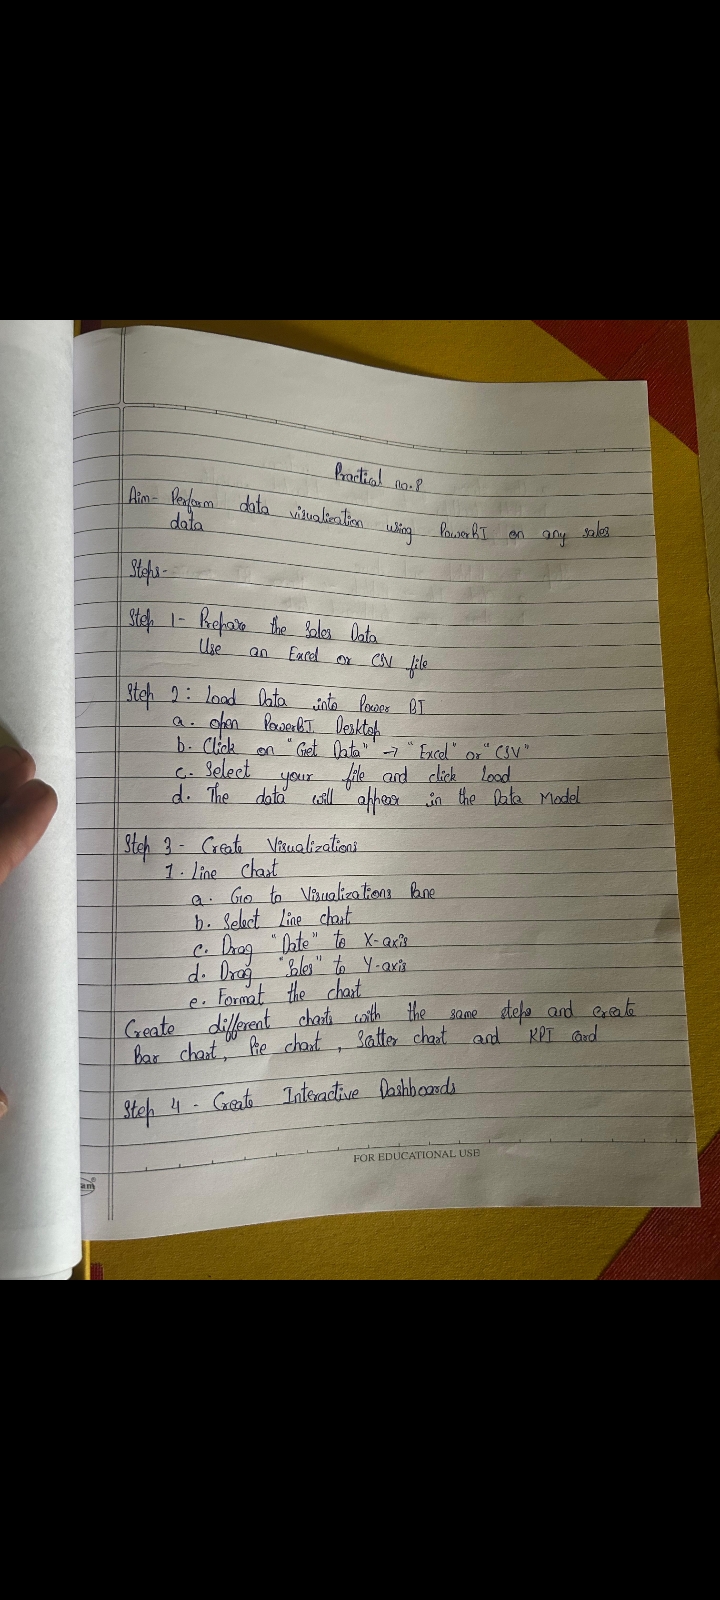 Practical no.8
Aim- Perform data visualization using PowerBI on any sales
data
Steps-
Step 1- Prepare the Sales Data
Use an Excel or CSV file
Step 2: Load Data into Power BI
a. open PowerBI Desktop
b. Click on "Get Data" → "Excel" or "CSV"
c. Select your file and click Load
d. The data will appear in the Data Model
Step 3 - Create Visualizations
1. Line Chart
a. Go to Visualizations Pane
b. Select Line chart
c. Drag "Date" to X-axis
d. Drag "Sales" to Y-axis
e. Format the chart
Create different charts with the same steps and create
Bar chart, Pie chart, Scatter chart and KPI Card
Step 4 - Create Interactive Dashboards
FOR EDUCATIONAL USE